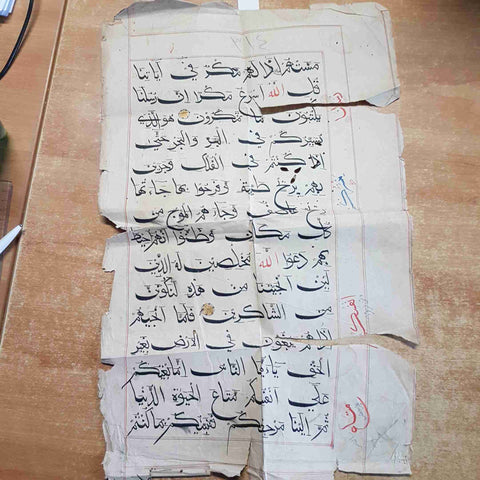 مستهم اذا لهم مكر في اياتنا
قل الله اسرع مكرا ان رسلنا
يكتبون ما تمكرون هو الذي
يسيركم في البر والبحر حتي
اذا كنتم في الفلك وجرين
بهم بريح طيبة وفرحوا بها جاءتها
ريح عاصف وجاءهم الموج من
كل مكان وظنوا انهم احيط
بهم دعوا الله مخلصين له الدين
لئن انجيتنا من هذه لنكونن
من الشاكرين فلما انجيهم
اذا هم يبغون في الارض بغير
الحق يايها الناس انما بغيكم
علي انفسكم متاع الحيوة الدنيا
ثم الينا مرجعكم فننبئكم بما كنتم